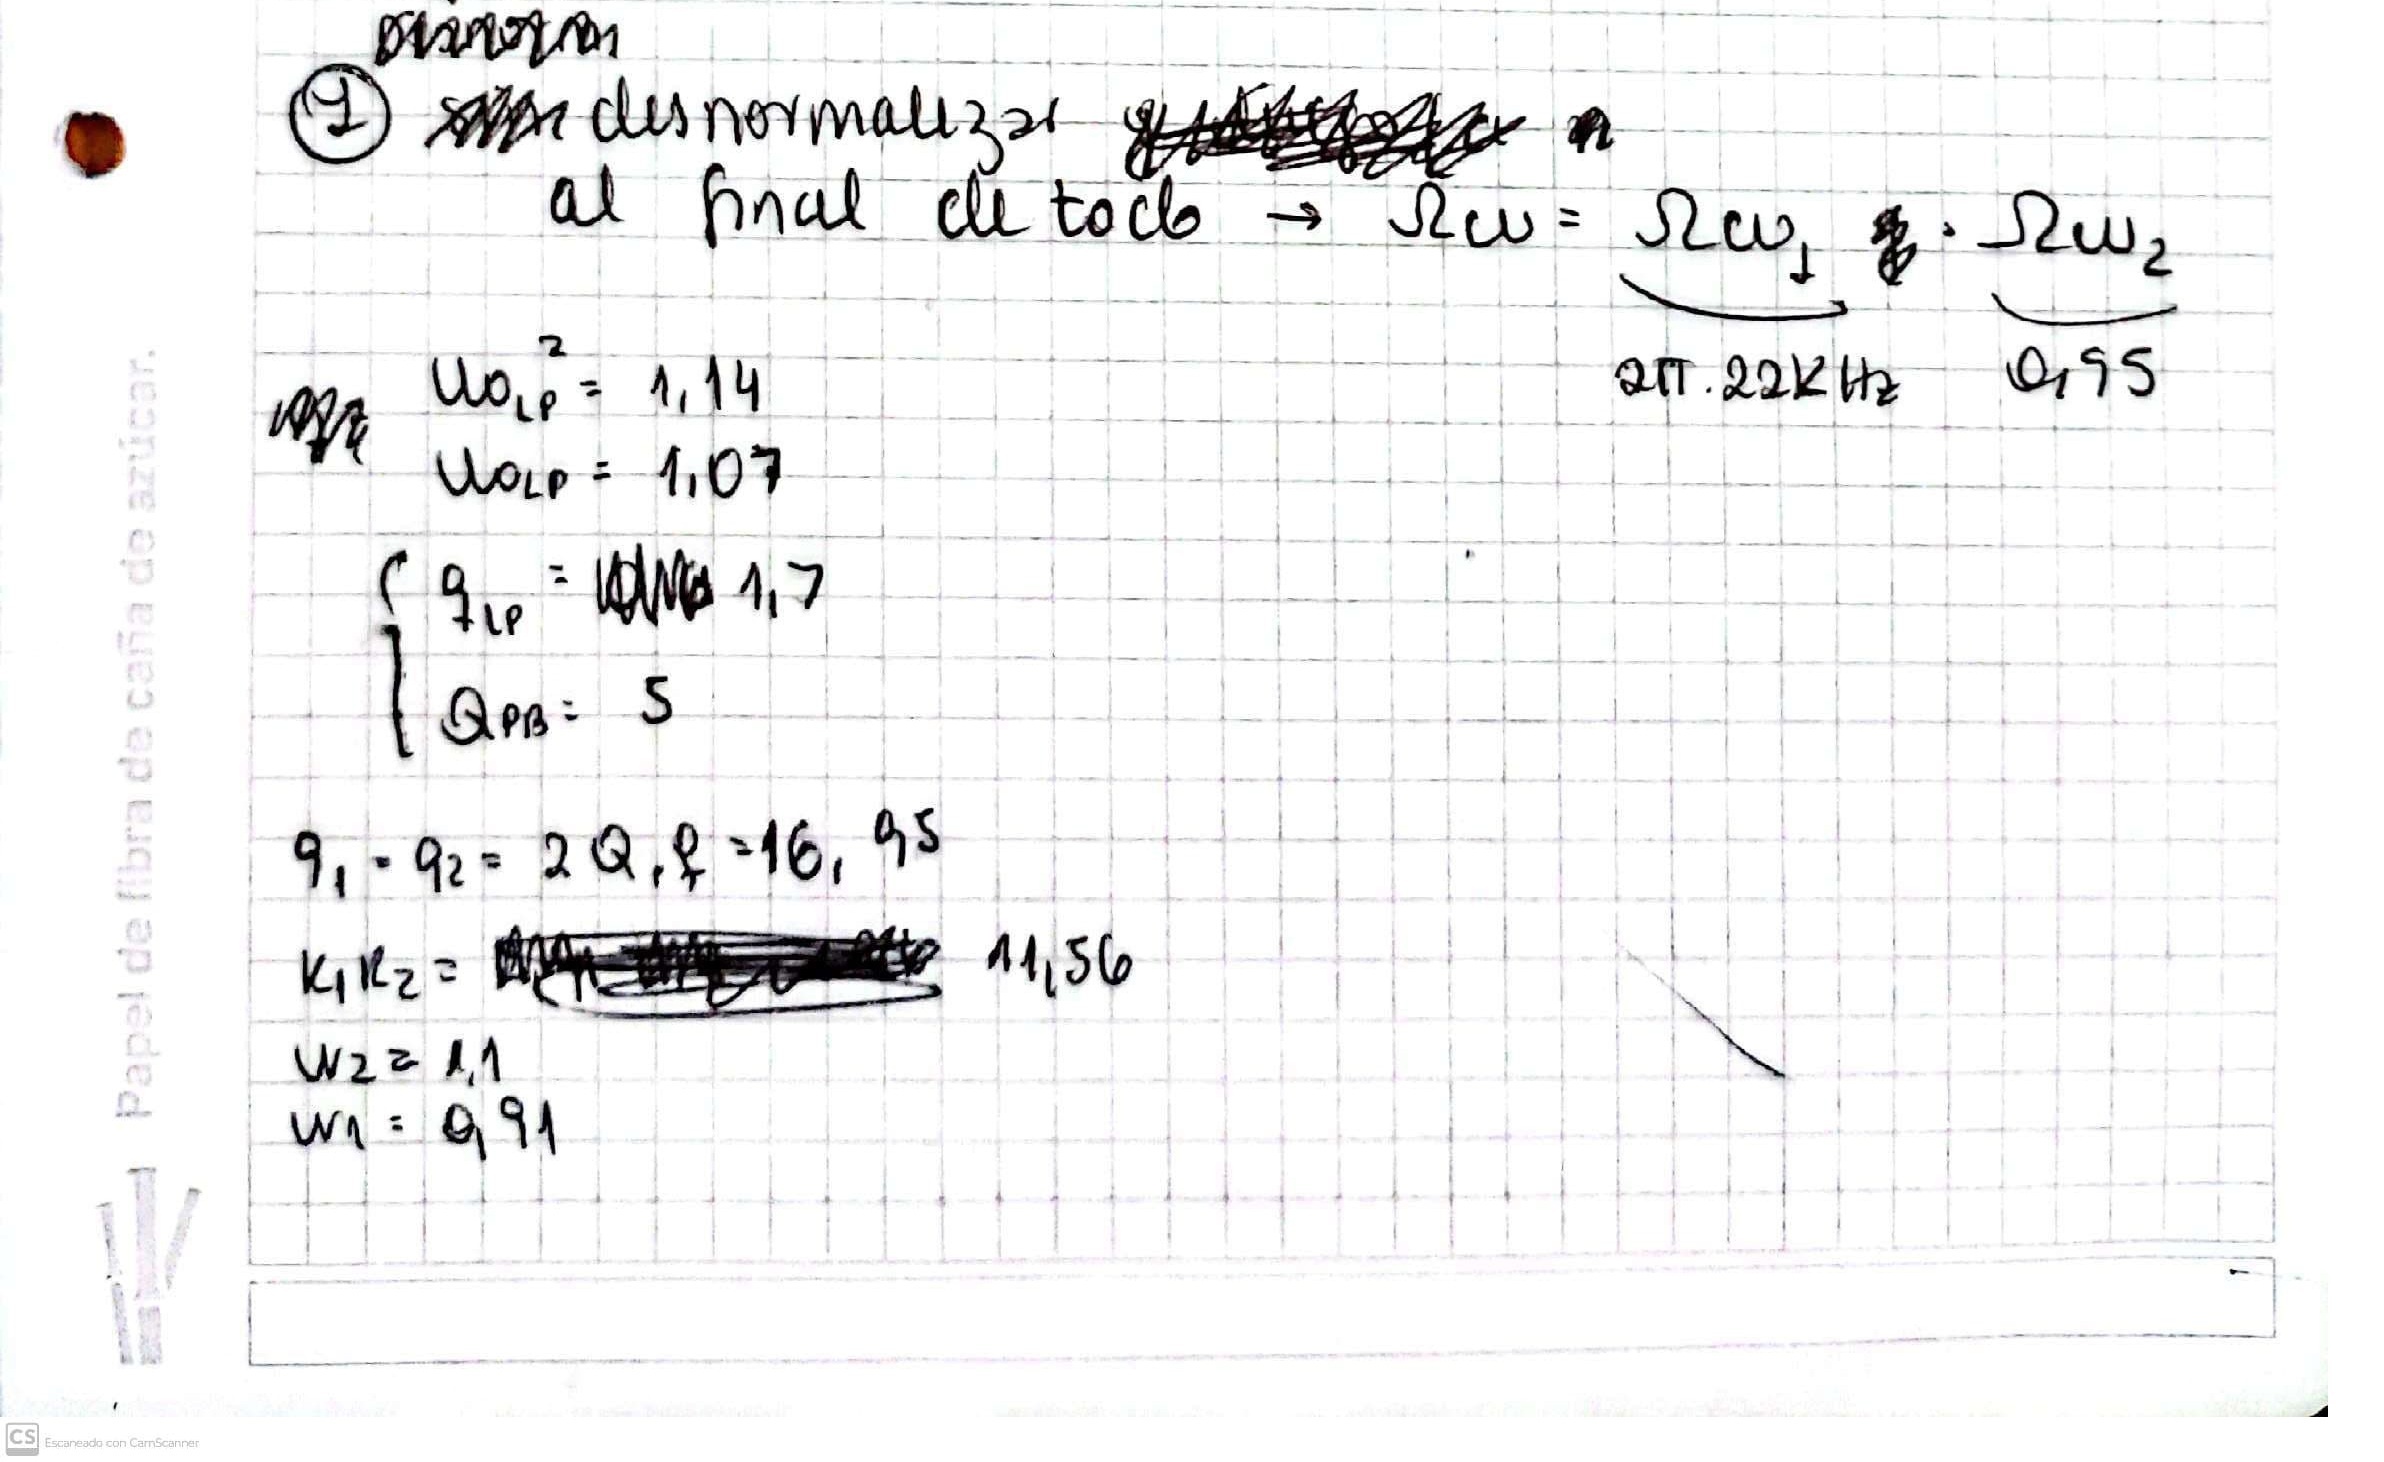 ① desnormalizar
al final de todo → Ωw = Ωw₁ · Ωw₂
2π.22KHz 0,95
ωo_LP² = 1,14
ωo_LP = 1,07
q_LP = 1,7
Q_PB = 5
q₁ = q₂ = 2Q.q = 16,95
K₁K₂ = 11,56
w₂ = 1,1
w₁ = 0,91
Papel de fibra de caña de azúcar.
CS Escaneado con CamScanner